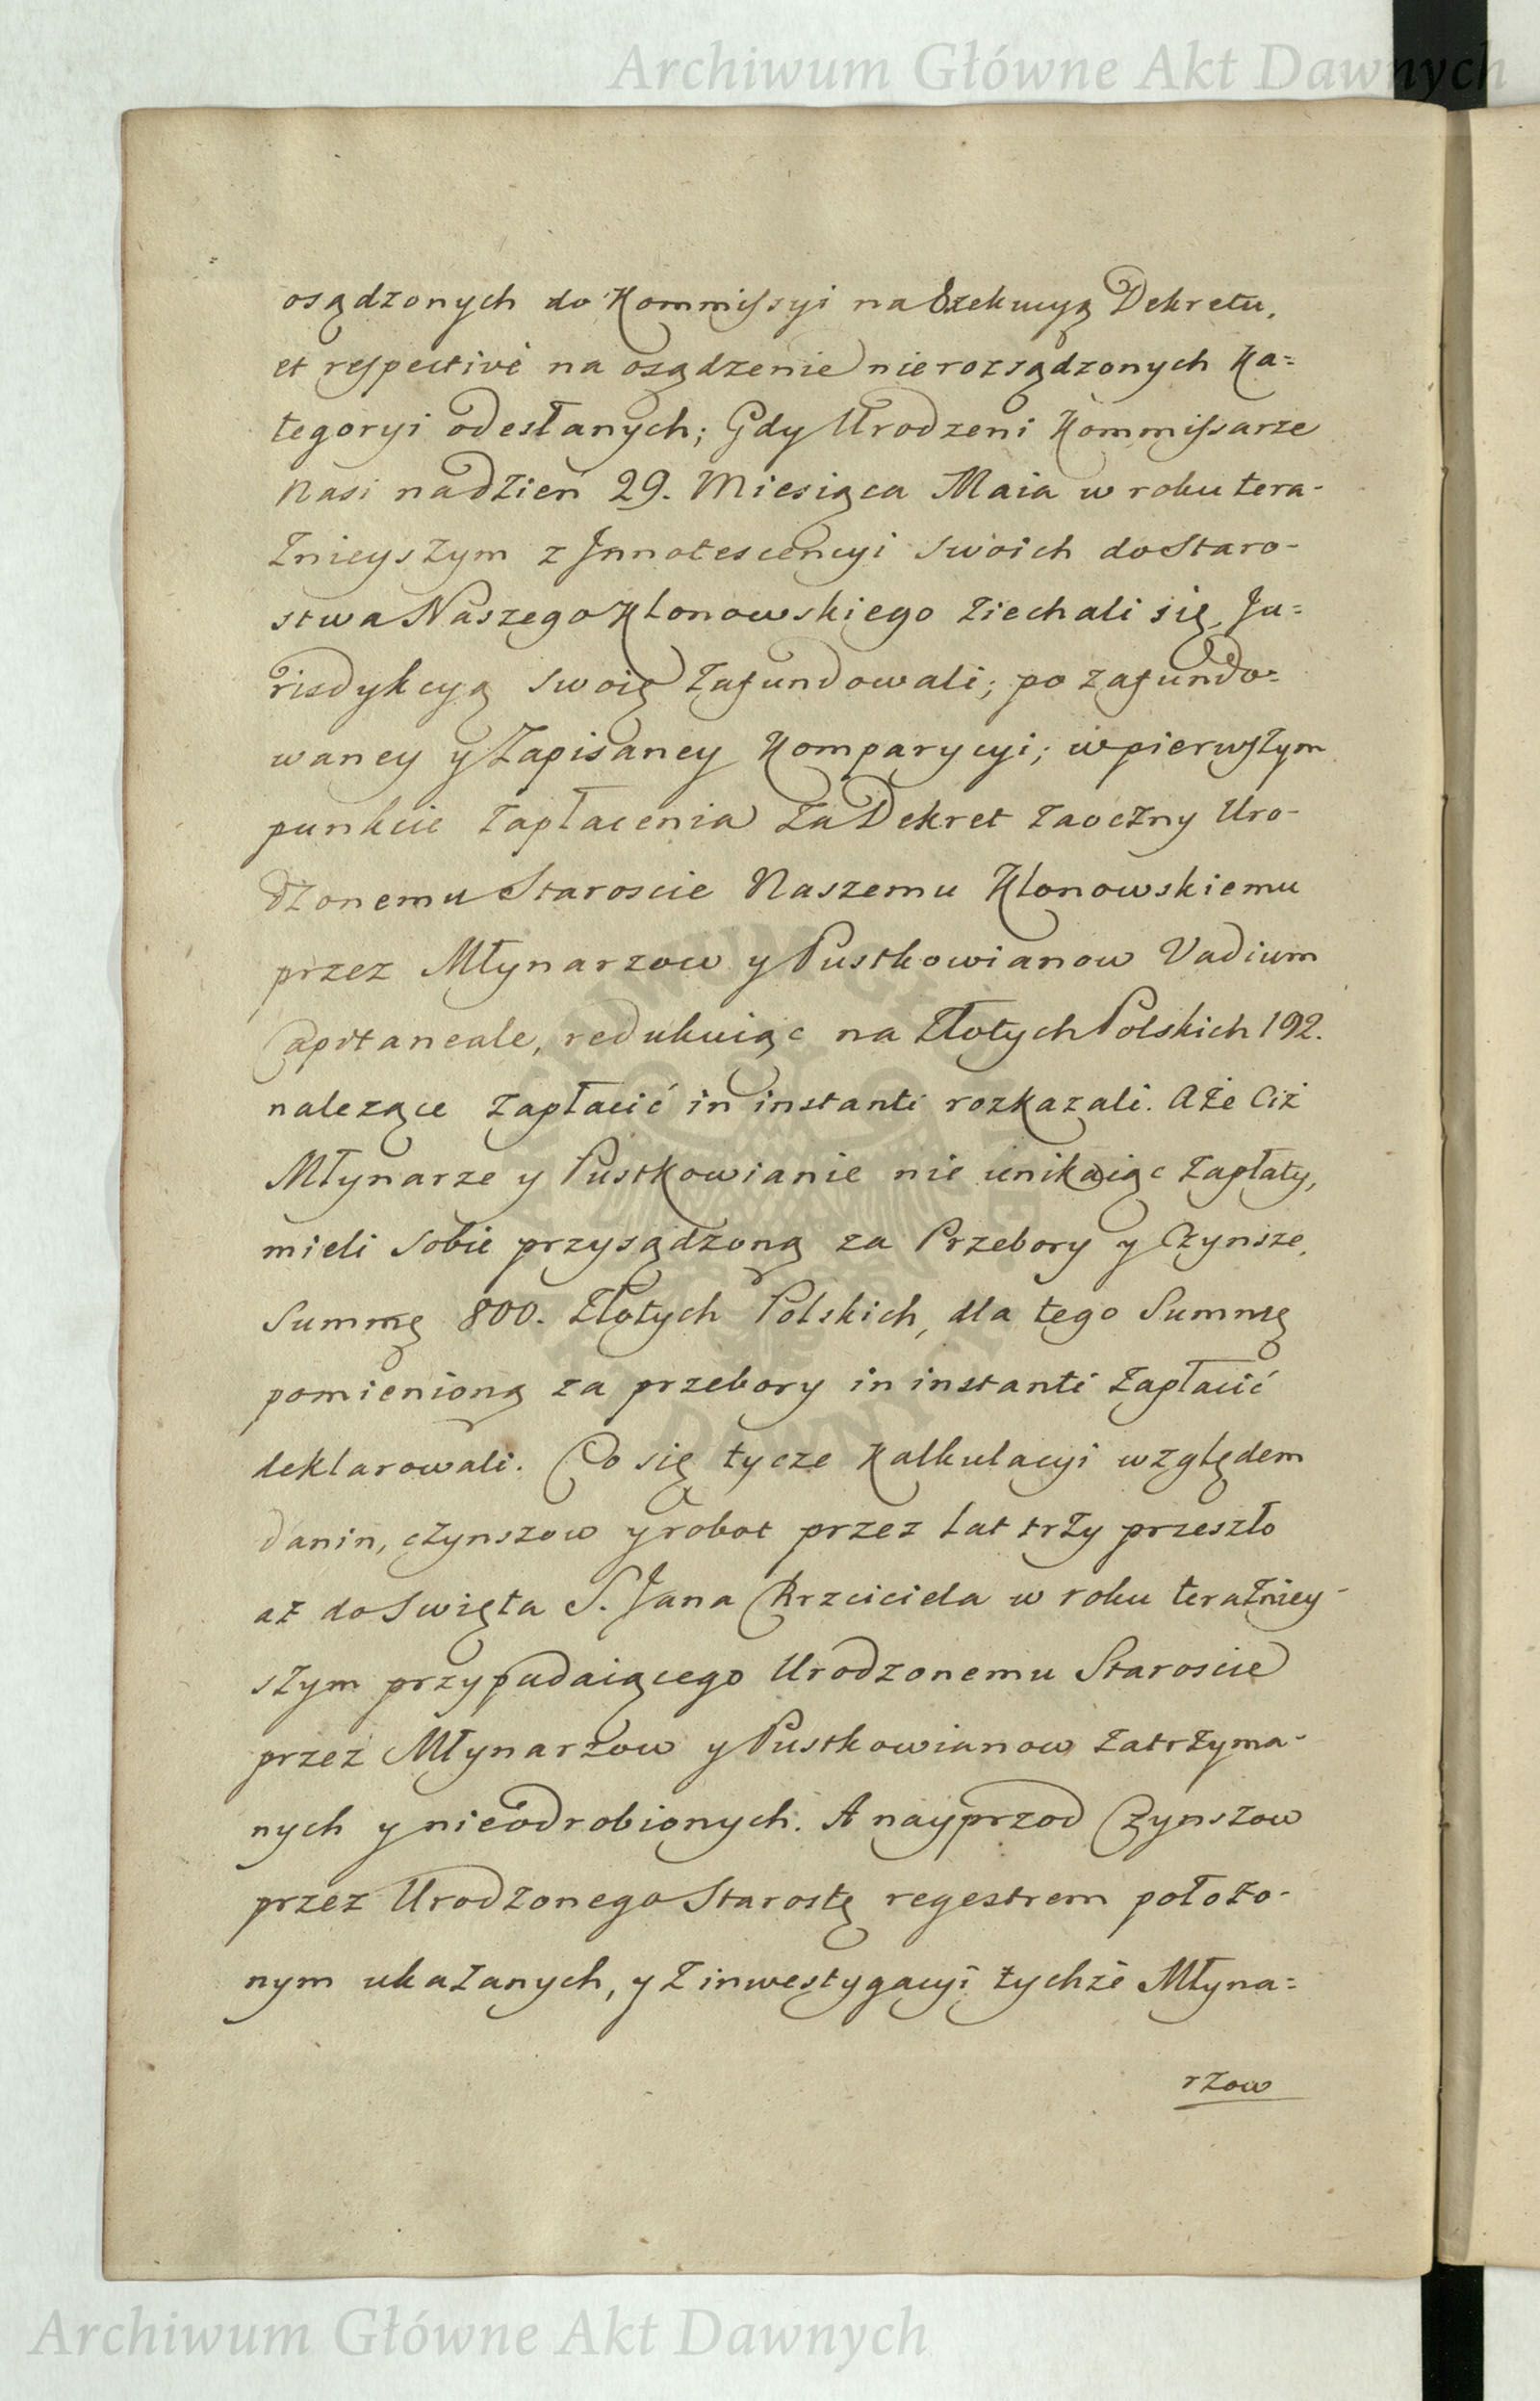 Archiwum Główne Akt Dawnych
osądzonych do Kommissyi na Exekucyą Dekretu,
et respectivè na osądzenie nierozsądzonych Ka=
tegoryi odesłanych; Gdy Urodzeni Kommissarze
Nasi na dzień 29. Miesiąca Maia w roku tera-
znieyszym z Jnnotescencyi swoich do Staro-
stwa Naszego Klonowskiego ziechali się, Ju=
risdykcyą swoię zafundowali; po zafundo=
waney y zapisaney Komparycyi; w pierwszym
punkcie zapłacenia za Dekret zaoczny Uro-
dzonemu Staroscie Naszemu Klonowskiemu
przez Młynarzow y Pustkowianow Vadium
Capitaneale, redukuiąc na Złotych Polskich 192.
nalezące zapłacić in instanti rozkazali. A że Ciż
Młynarze y Pustkowianie nie unikaiąc zapłaty,
mieli sobie przysądzoną za Przebory y Czynsze,
Summę 800. Złotych Polskich, dla tego Summę
pomienioną za przebory in instanti zapłacić
deklarowali. Co się tycze Kalkulacyi względem
danin, czynszow y robot przez lat trzy przeszło
aż do Swięta S. Jana Krzciciela w roku teraźniey-
szym przypadaiącego Urodzonemu Staroscie
przez Młynarzow y Pustkowianow zatrzyma-
nych y nieodrobionych. A nayprzod Czynszow
przez Urodzonego Starostę regestrem położo-
nym ukazanych, y z inwestygacyi tychże Młyna=
rzow
Archiwum Główne Akt Dawnych